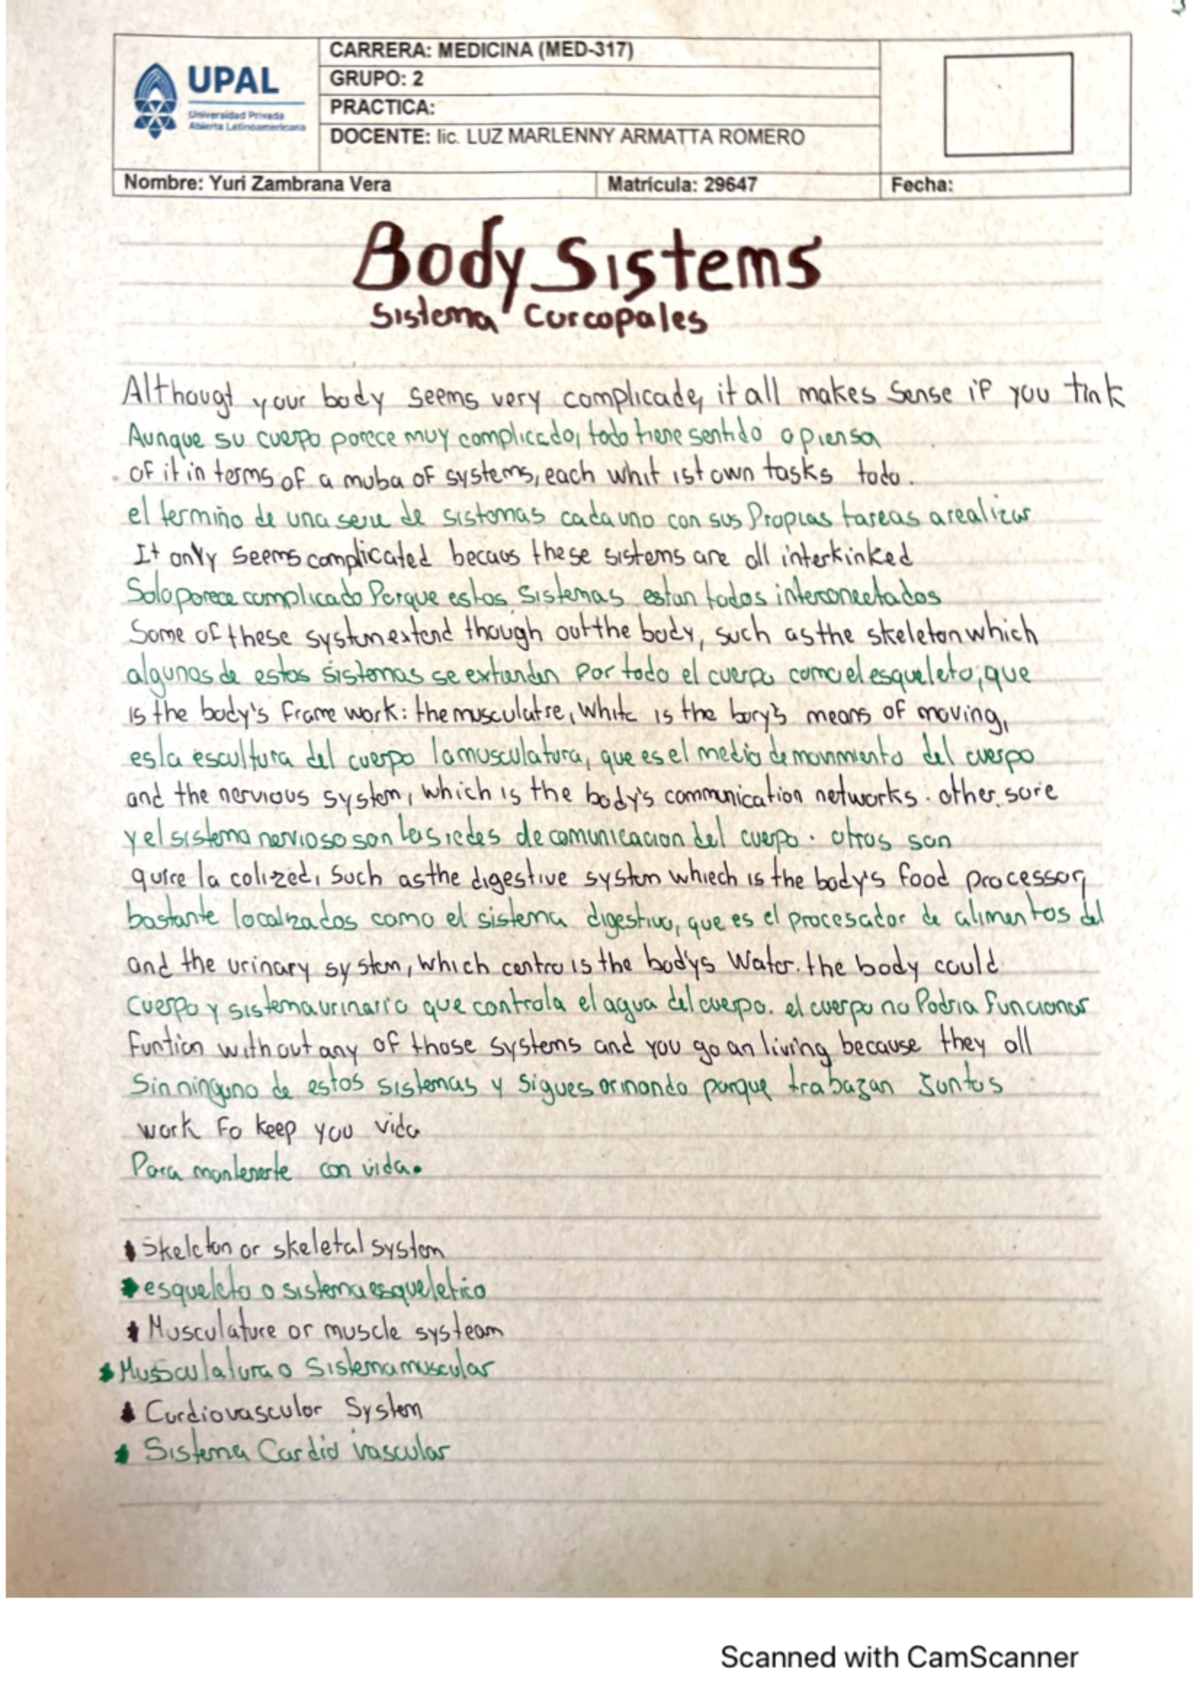 UPAL
Universidad Privada
Abierta Latinoamericana
CARRERA: MEDICINA (MED-317)
GRUPO: 2
PRACTICA:
DOCENTE: lic. LUZ MARLENNY ARMATTA ROMERO
Nombre: Yuri Zambrana Vera Matricula: 29647 Fecha:
Body Sistems
Sistema Corcopales
Althougt your body seems very complicade, it all makes sense if you tink
Aunque su cuerpo parece muy complicado, todo tiene sentido o piensa
of it in terms of a muba of systems, each whit ist own tasks todo.
el termino de una serie de sistomas cada uno con sus Propias tareas a realizar
It only seems complicated becaus these sistems are all interkinked
Solo parece complicado Porque estos sistemas estan todos interconectados
Some of these systom extend though out the body, such as the skeleton which
algunos de estos sistemas se extienden por todo el cuerpo como el esqueleto, que
is the body's frame work: the musculatse, white is the bory's means of moving,
es la escultura del cuerpo la musculatura, que es el medio de movimiento del cuerpo
and the nervious system, which is the body's communication networks. other sore
y el sistema nervioso son las redes de comunicacion del cuerpo. otros son
quire la colized, such as the digestive systom whiech is the body's food processor,
bastante localizados como el sistema digestivo, que es el procesador de alimentos del
and the urinary system, which centro is the body's Water. the body could
cuerpo y sistema urinario que controla el agua del cuerpo. el cuerpo no Podria funcionar
funtion without any of those systems and you go an living because they all
Sin ninguno de estos sistemas y sigues orinando porque trabazan Juntos
work Fo keep you vida
Para mantenerte con vida.
Skeleton or skeletal systom
esqueleto o sistema esqueletico
Musculature or muscle systeam
Musculatura o Sistema muscular
Cardiovasculor System
Sistema Cardio vascular
Scanned with CamScanner